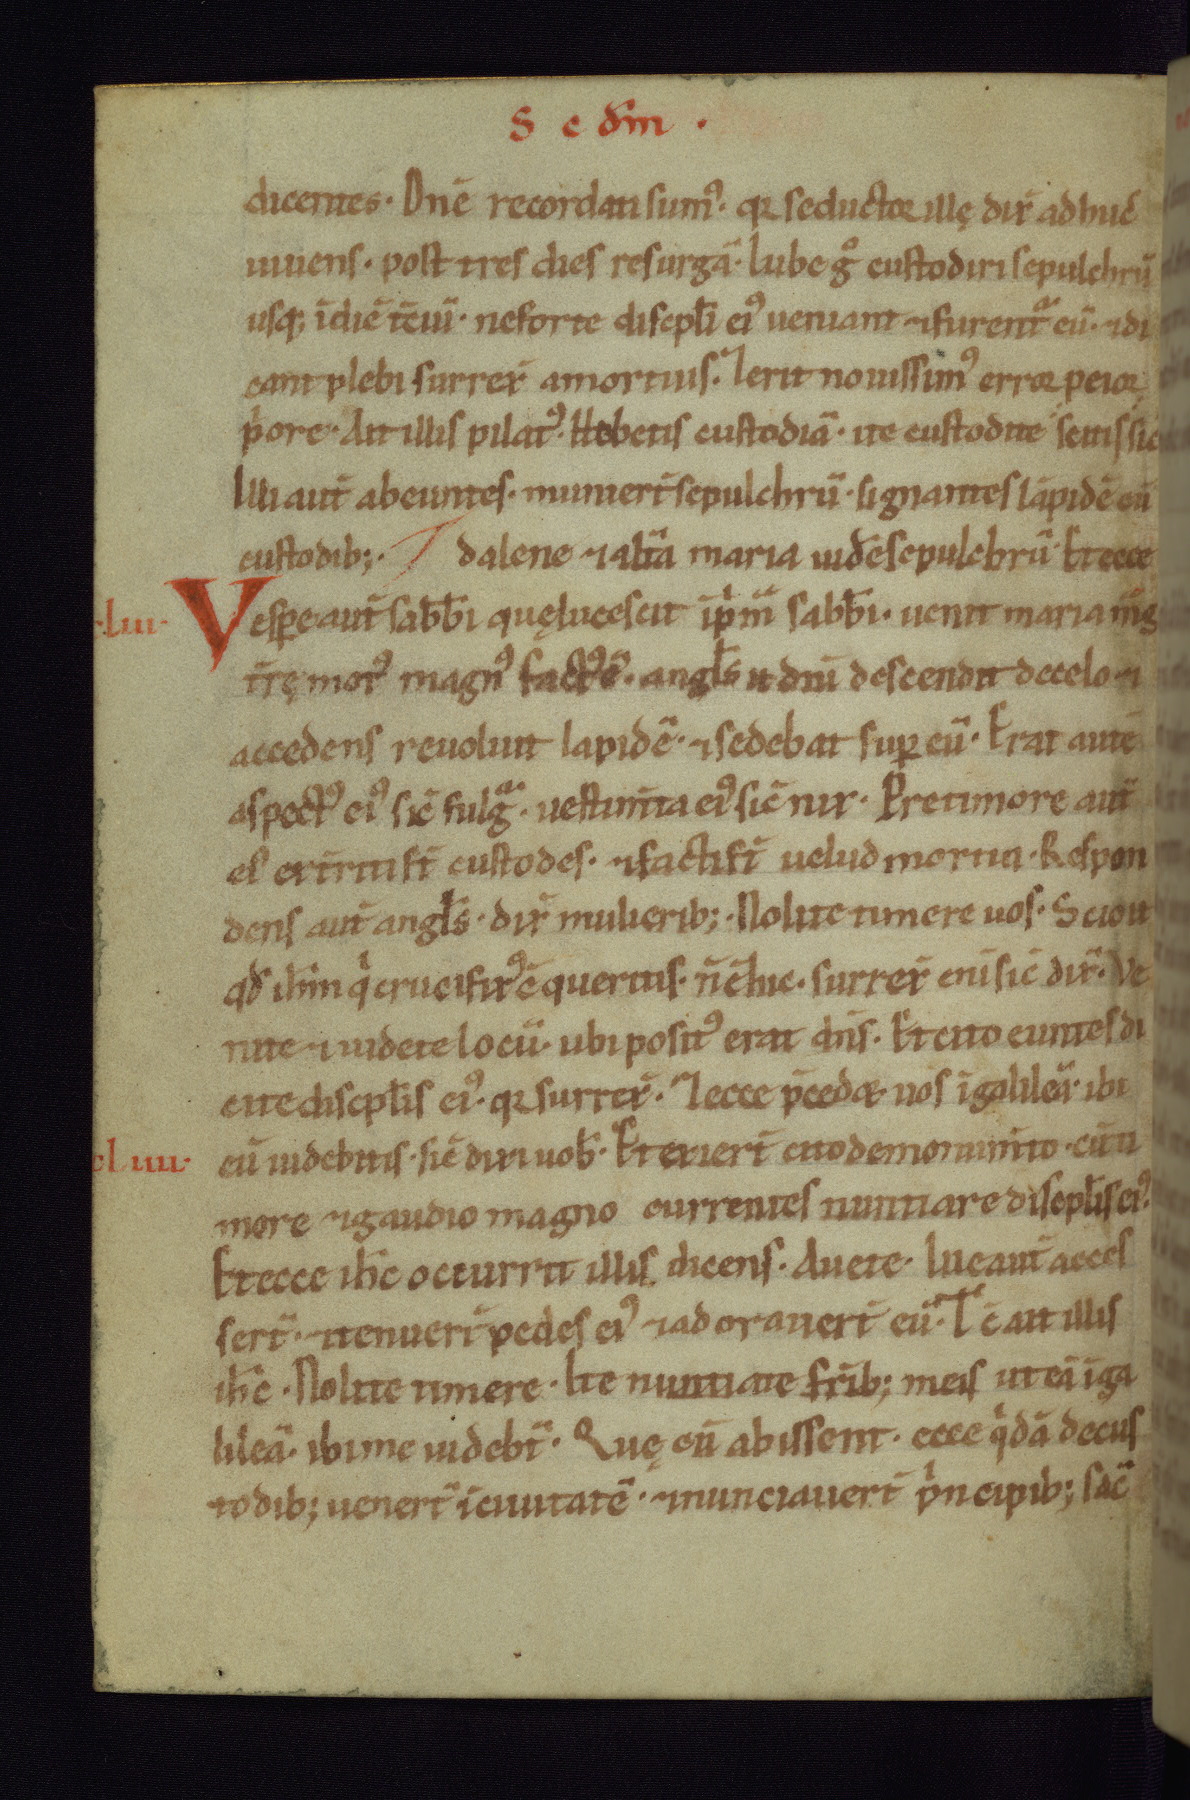 S e dm̄ .
dicentes · Dn̄e recordati sum᷒ · qꝛ seductor illę dix̄ adhuc
uiuens · post tres dies resurgā · Iube gͦ custodiri sepulchrū
usq; īdiē t̄ciū · neforte discipl̄i ei᷒ ueniant ⁊furent᷑ eū · ⁊di
cant plebi surrex̄ amortuis · ⁊erit nouissim᷒ error peior
p̄ore · Ait illis pilat᷒ · Habetis custodiā · ite custodite scitis sic
Illi aut̄ abeuntes · munier̄t sepulchrū · signantes lapidē cū
custodib; · dalene ⁊alt̄a maria uid̄e sepulchrū · Et ecce
·lııı· Vespe aut̄ sabb̄i quęlucescit ıp̄mā sabb̄i · uenit maria mag
t̄rę mot᷒ magn᷒ fact᷒ ē · angl̄s n̄ dn̄i descendit decelo ⁊
accedens reuoluit lapidē · ⁊sedebat sup eū · Erat autē
aspect᷒ ei᷒ sic̄ fulgᷓ · uestim̄ta ei᷒ sic̄ nix · Pretimore aut̄
ei᷒ ext̄riti st̄ custodes · ⁊facti st̄ uelud mortui · Respon
dens aut̄ angl̄s · dix̄ mulierib; · Nolite timere uos · Scio n̄
qd̄ ih̄m q̇ crucifix᷒ ē queritis · n̄ ē hic · surrex̄ enī sic̄ dix̄ · Ve
nite ⁊ uidete locū · ubi posit᷒ erat dn̄s · Et cito euntes di
cite discipl̄is ei᷒ · qꝛ surrex̄ · ⁊ecce p̄ced& uos īgalileā · ibi
·lıııı· eū uidebitis · sic̄ dixi uob̄ · Et exier̄t cito demonum̄to · cū ti
more ⁊gaudio magno currentes nuntiare discipl̄is ei᷒ ·
Et ecce ih̄c occurrit illis dicens · Auete · Ille aut̄ acces
sert̄ · ⁊tenuer̄t pedes ei᷒ ⁊adorauer̄t eū · T̄c ait illis
ih̄c · Nolite timere · Ite nuntiate frīb; meis ut eā īga
lileā · ibi me uideb̄t · Quę cū abissent · ecce q̇dā decus
todib; uenert̄ īciuitatē · ⁊nunciauer̄t p̄ncipib; sac̄